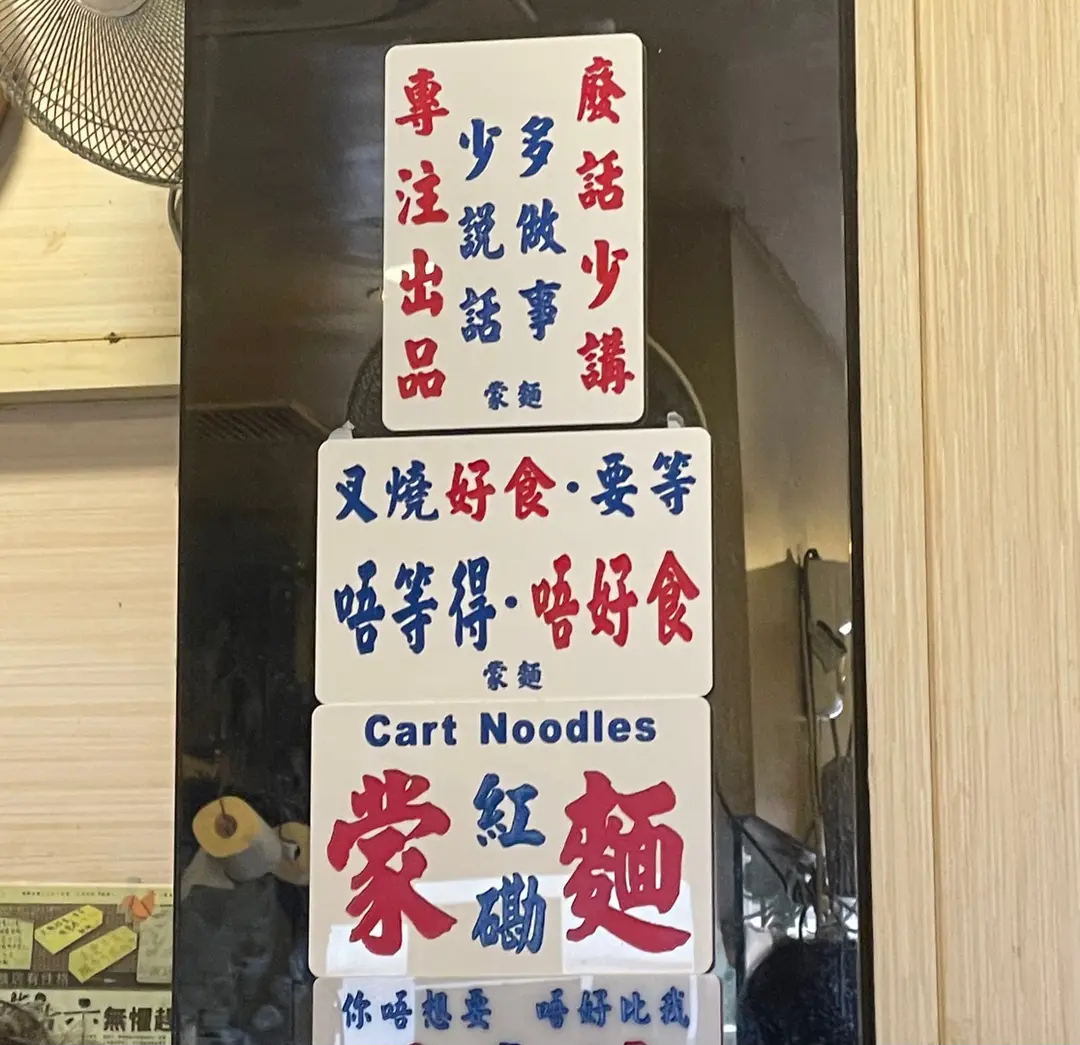 廢話少講
多做事
少説話
專注出品
蒙麵
叉燒好食·要等
唔等得·唔好食
蒙麵
Cart Noodles
蒙 紅磡 麵
你唔想要 唔好比我
無懼